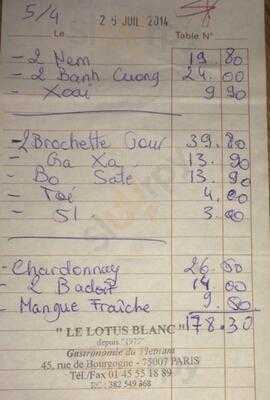 5/4
25 JUIL 2014
Le
Table N°
- 2 Nem 19 80
- 2 Banh Cuong 24.00
- Xoai 9 90
- 2 Brochette Gour 39.80
- Ga Xa 13.90
- Bo Saté 13.90
- Toi 4.00
- S1 3.00
- Chardonnay 26.50
- 2 Badoit 14.00
- Mangue Fraîche 9.50
178.30
" LE LOTUS BLANC "
depuis "1975"
Gastronomie du Vietnam
45, rue de Bourgogne - 75007 PARIS
Tél./Fax 01 45 55 18 89
RC : 382 549 368